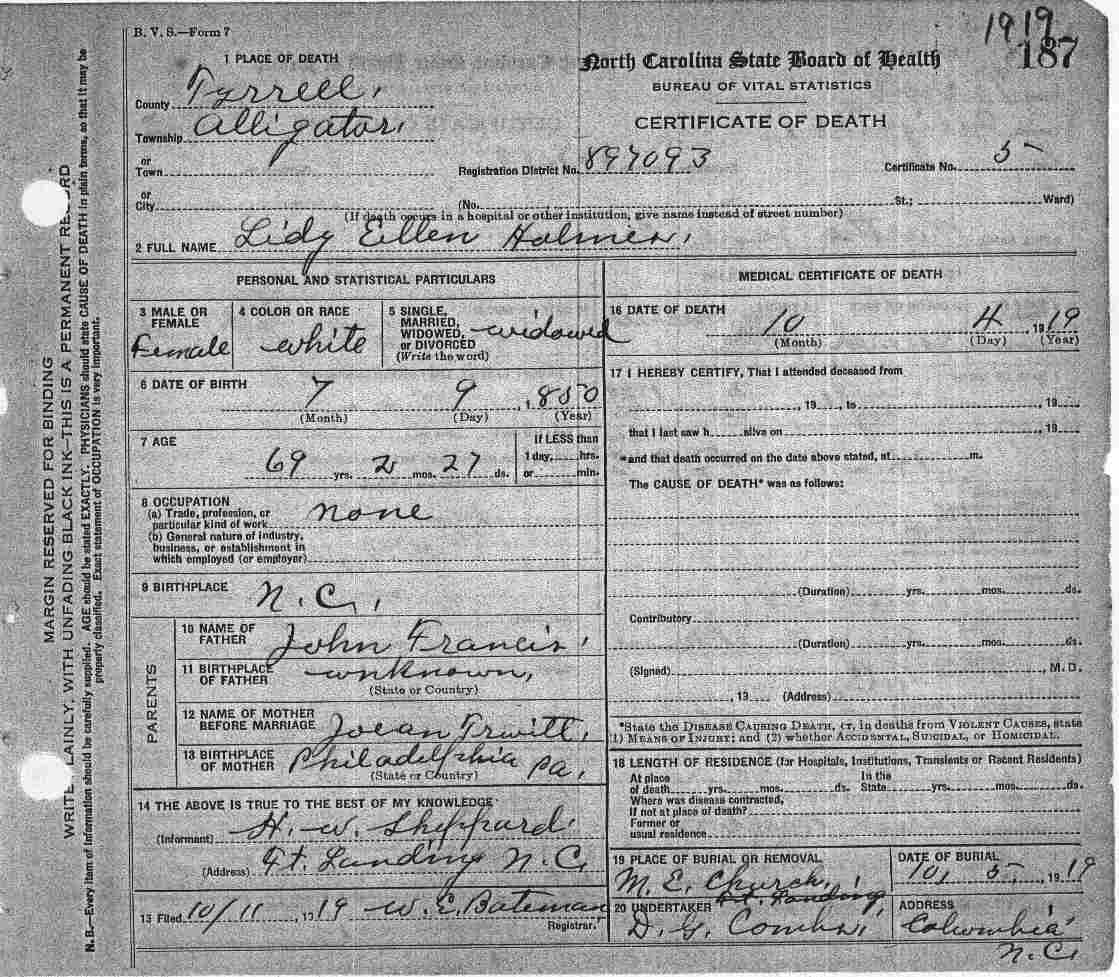 1919
187
B. V. S.—Form 7
1 PLACE OF DEATH
North Carolina State Board of Health
BUREAU OF VITAL STATISTICS
CERTIFICATE OF DEATH
County Tyrrell,
Township Alligator,
or
Town
Registration District No. 897093 Certificate No. 5-
or
City (No. St.; Ward)
(If death occurs in a hospital or other institution, give name instead of street number)
2 FULL NAME Lidy Ellen Holmes,
PERSONAL AND STATISTICAL PARTICULARS
3 MALE OR FEMALE Female
4 COLOR OR RACE white
5 SINGLE, MARRIED, WIDOWED, or DIVORCED (Write the word) widowed
6 DATE OF BIRTH 7 9, 1850
(Month) (Day) (Year)
7 AGE If LESS than
69 yrs. 2 mos. 27 ds.
1 day, hrs.
or min.
8 OCCUPATION
(a) Trade, profession, or
particular kind of work none
(b) General nature of Industry,
business, or establishment in
which employed (or employer)
9 BIRTHPLACE N.C.,
PARENTS
10 NAME OF FATHER John Francis,
11 BIRTHPLACE OF FATHER unknown,
(State or Country)
12 NAME OF MOTHER BEFORE MARRIAGE
13 BIRTHPLACE OF MOTHER Philadelphia pa,
(State or Country)
14 THE ABOVE IS TRUE TO THE BEST OF MY KNOWLEDGE
(Informant) H. W. Sheppard,
(Address) Ft. Landing N.C.
15 Filed 10/11, 1919 W. E. Bateman
Registrar.
MEDICAL CERTIFICATE OF DEATH
16 DATE OF DEATH
10 4 1919
(Month) (Day) (Year)
17 I HEREBY CERTIFY, That I attended deceased from
, 19 , to , 19
that I last saw h alive on , 19
and that death occurred on the date above stated, at m.
The CAUSE OF DEATH* was as follows:
(Duration) yrs. mos. ds.
Contributory
(Duration) yrs. mos. ds.
(Signed) , M.D.
, 19 (Address)
*State the DISEASE CAUSING DEATH, or, in deaths from VIOLENT CAUSES, state
1) MEANS OF INJURY; and (2) whether ACCIDENTAL, SUICIDAL, or HOMICIDAL.
18 LENGTH OF RESIDENCE (for Hospitals, Institutions, Transients or Recent Residents)
At place In the
of death yrs. mos. ds. State yrs. mos. ds.
Where was disease contracted,
If not at place of death?
Former or
usual residence
19 PLACE OF BURIAL OR REMOVAL
M. E. Church,
Ft. Landing,
DATE OF BURIAL
10, 5, 1919
20 UNDERTAKER
D. G. Combs,
ADDRESS
Columbia
N.C.
MARGIN RESERVED FOR BINDING
WRITE PLAINLY, WITH UNFADING BLACK INK—THIS IS A PERMANENT RECORD
N. B.—Every item of Information should be carefully supplied. AGE should be stated EXACTLY. PHYSICIANS should state CAUSE OF DEATH in plain terms, so that it may be
properly classified. Exact statement of OCCUPATION is very important.